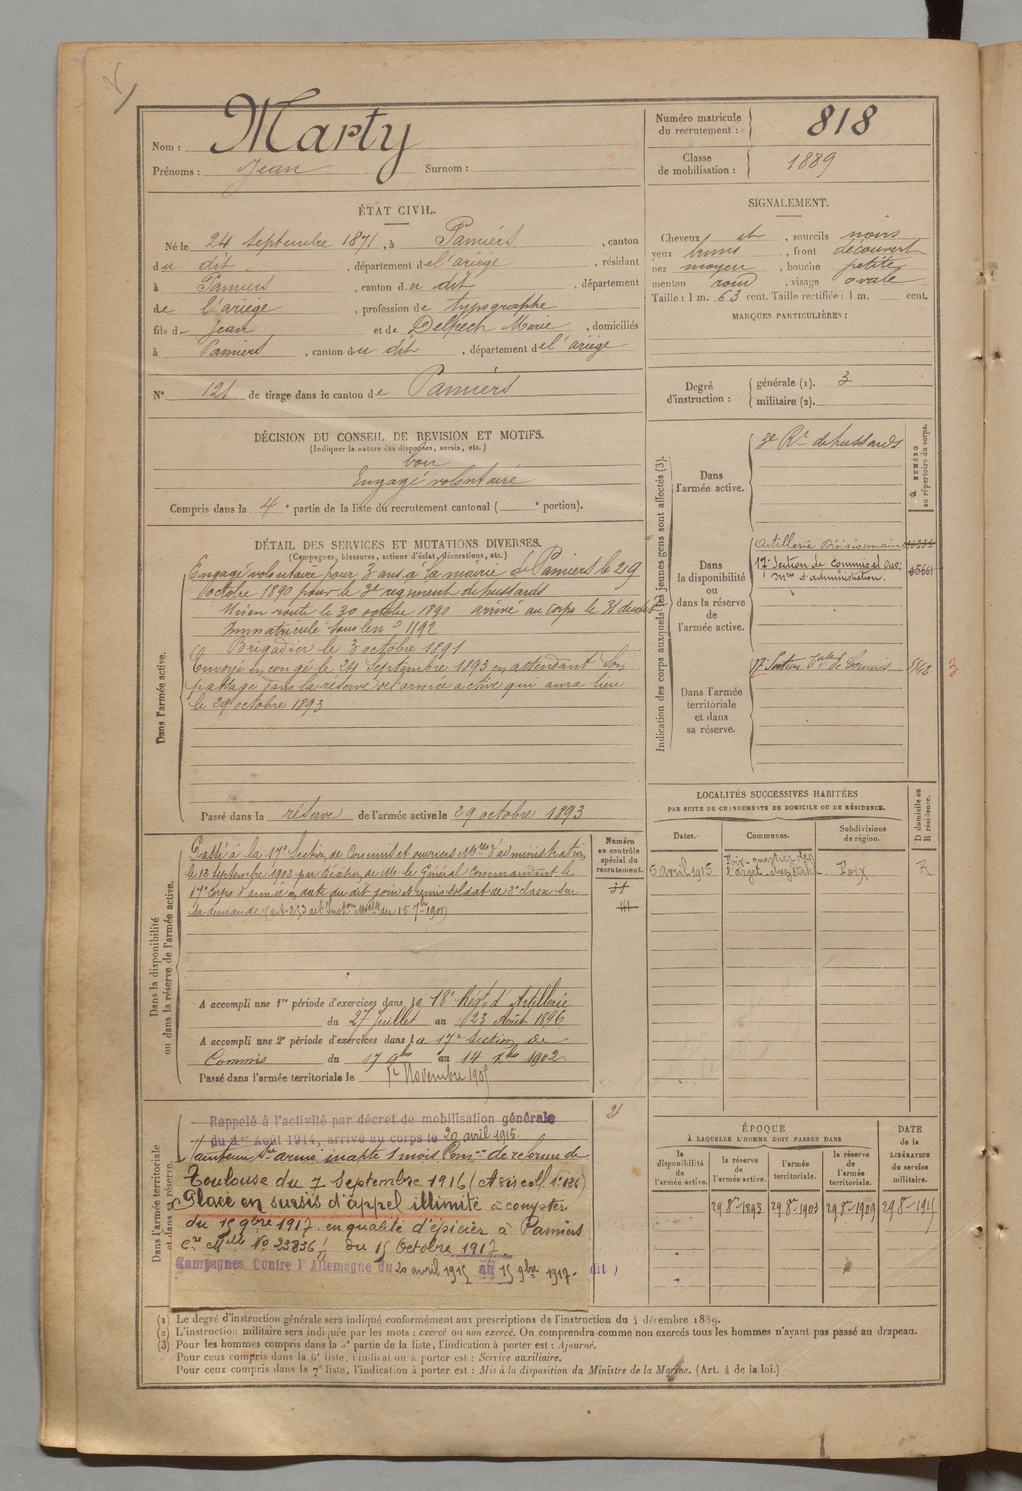 Nom : Marty
Prénoms : Jean Surnom :
Numéro matricule du recrutement : 818
Classe de mobilisation : 1889
ÉTAT CIVIL.
Né le 24 Septembre 1871, à Pamiers, canton
du dit, département de l'ariège, résidant
à Pamiers, canton du dit, département
de l'ariège, profession de typographe
fils de Jean et de Delpech Marie, domiciliés
à Pamiers, canton du dit, département de l'ariège
N° 121 de tirage dans le canton de Pamiers
SIGNALEMENT.
Cheveux et, sourcils noirs
yeux bruns, front découvert
nez moyen, bouche petite
menton rond, visage ovale
Taille : 1 m. 63 cent. Taille rectifiée : 1 m. cent.
MARQUES PARTICULIÈRES :
Degré d'instruction : générale (1). 3
militaire (2).
DÉCISION DU CONSEIL DE REVISION ET MOTIFS.
(Indiquer la nature des dispenses, sursis, etc.)
bon
Engagé volontaire
Compris dans la 4e partie de la liste du recrutement cantonal ( e portion).
DÉTAIL DES SERVICES ET MUTATIONS DIVERSES.
(Campagnes, blessures, actions d'éclat, décorations, etc.)
Dans l'armée active.
Engagé volontaire pour 3 ans à la mairie de Pamiers le 29
octobre 1890 pour le 3e régiment de hussards
Mis en route le 30 octobre 1890 arrivé au corps le 31 dudit
Immatriculé sous le n° 1192
Brigadier le 3 octobre 1891
Envoyé en congé le 24 Septembre 1893 en attendant son
passage dans la réserve de l'armée active qui aura lieu
le 29 octobre 1893
Passé dans la réserve de l'armée active le 29 octobre 1893
Indication des corps auxquels les jeunes gens sont affectés (3).
NUMÉRO au répertoire du corps.
Dans l'armée active.
3e Rt de hussards
Dans la disponibilité ou dans la réserve de l'armée active.
Artillerie Divisionnaire
17e Section de Commis et Ouv.
Mres d'administration.
Dans l'armée territoriale et dans sa réserve.
17e Section tale de Commis
3
LOCALITÉS SUCCESSIVES HABITÉES
PAR SUITE DE CHANGEMENTS DE DOMICILE OU DE RÉSIDENCE.
Dates. Communes. Subdivisions de région. D domicile ou R résidence.
5 avril 1915 Foix R
Dans la disponibilité ou dans la réserve de l'armée active.
Numéro au contrôle spécial du recrutement.
Passé à la 17e Section de Commis et ouvriers Mres d'administration
le 13 Septembre 1902 par décision de Mr le Général Commandant le
17e Corps d'armée en date du dit jour et remis soldat de 2e classe sur
sa demande
A accompli une 1re période d'exercices dans le 18e Régt d'Artillerie
du 27 juillet au 23 Août 1896
A accompli une 2e période d'exercices dans la 17e Section de
Commis du 17 9bre au 14 Xbre 1902
Passé dans l'armée territoriale le 1er Novembre 1905
Dans l'armée territoriale et dans sa réserve.
21
Rappelé à l'activité par décret de mobilisation générale
du 1er Août 1914, arrivé au corps le 20 avril 1915.
inapte 1 mois Comon de réforme de
Toulouse du 7 Septembre 1916
Placé en sursis d'appel illimité à compter
du 15 9bre 1917 en qualité d'épicier à Pamiers
Cre Mlle No 23836 du 15 Octobre 1917
Campagnes Contre l'Allemagne du 20 avril 1915 au 15 9bre 1917. dit )
ÉPOQUE
À LAQUELLE L'HOMME DOIT PASSER DANS
la disponibilité de l'armée active. la réserve de l'armée active. l'armée territoriale. la réserve de l'armée territoriale.
DATE de la LIBÉRATION du service militaire.
29 8re 1893 29 8re 1903 29 8re 1909 29 8re 1915
(1) Le degré d'instruction générale sera indiqué conformément aux prescriptions de l'instruction du 4 décembre 1889.
(2) L'instruction militaire sera indiquée par les mots : exercé ou non exercé. On comprendra comme non exercés tous les hommes n'ayant pas passé au drapeau.
(3) Pour les hommes compris dans la 5e partie de la liste, l'indication à porter est : Ajourné.
Pour ceux compris dans la 6e liste, l'indication à porter est : Service auxiliaire.
Pour ceux compris dans la 7e liste, l'indication à porter est : Mis à la disposition du Ministre de la Marine. (Art. 4 de la loi.)